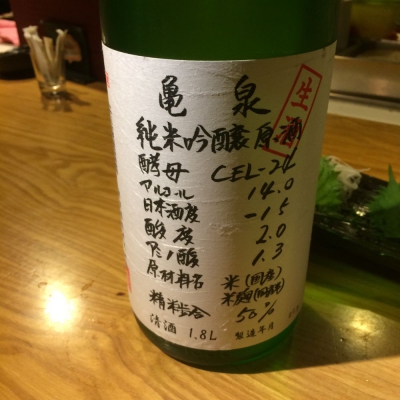 亀泉
生酒
純米吟醸原酒
酵母 CEL-24
アルコール 14.0
日本酒度 -15
酸度 2.0
アミノ酸 1.3
原材料名 米(国産)
米麹(国産米)
精米歩合 50%
清酒 1.8L 製造年月